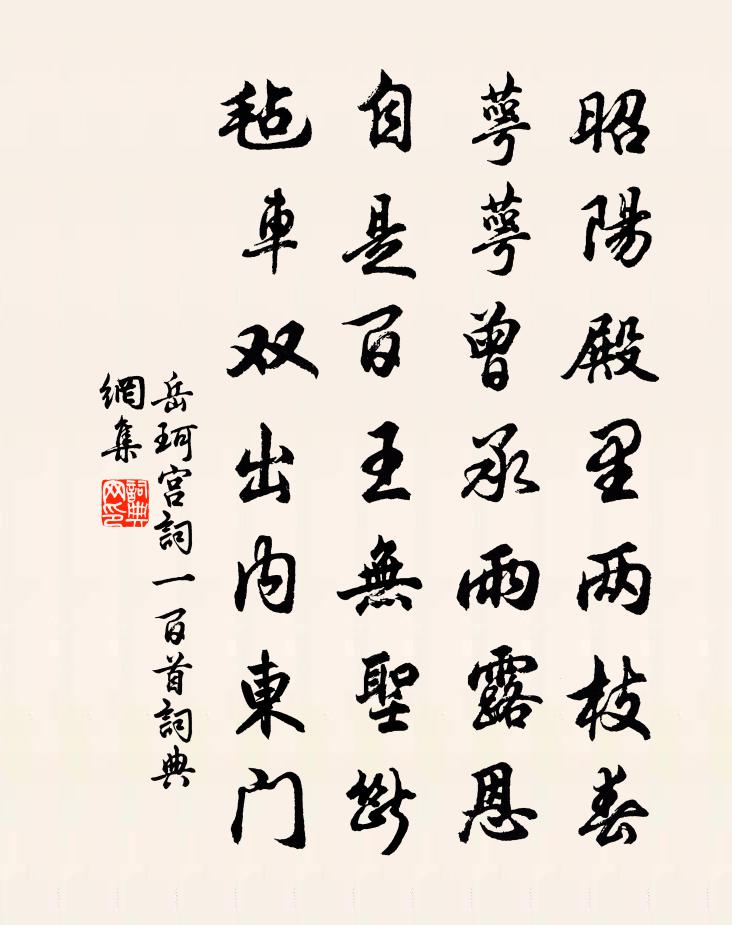 昭陽殿里两枝春
萼萼曾承雨露恩
自是百王無聖斷
毡車双出内東门
岳珂宫詞一百首詞典
網集
詞典
网印